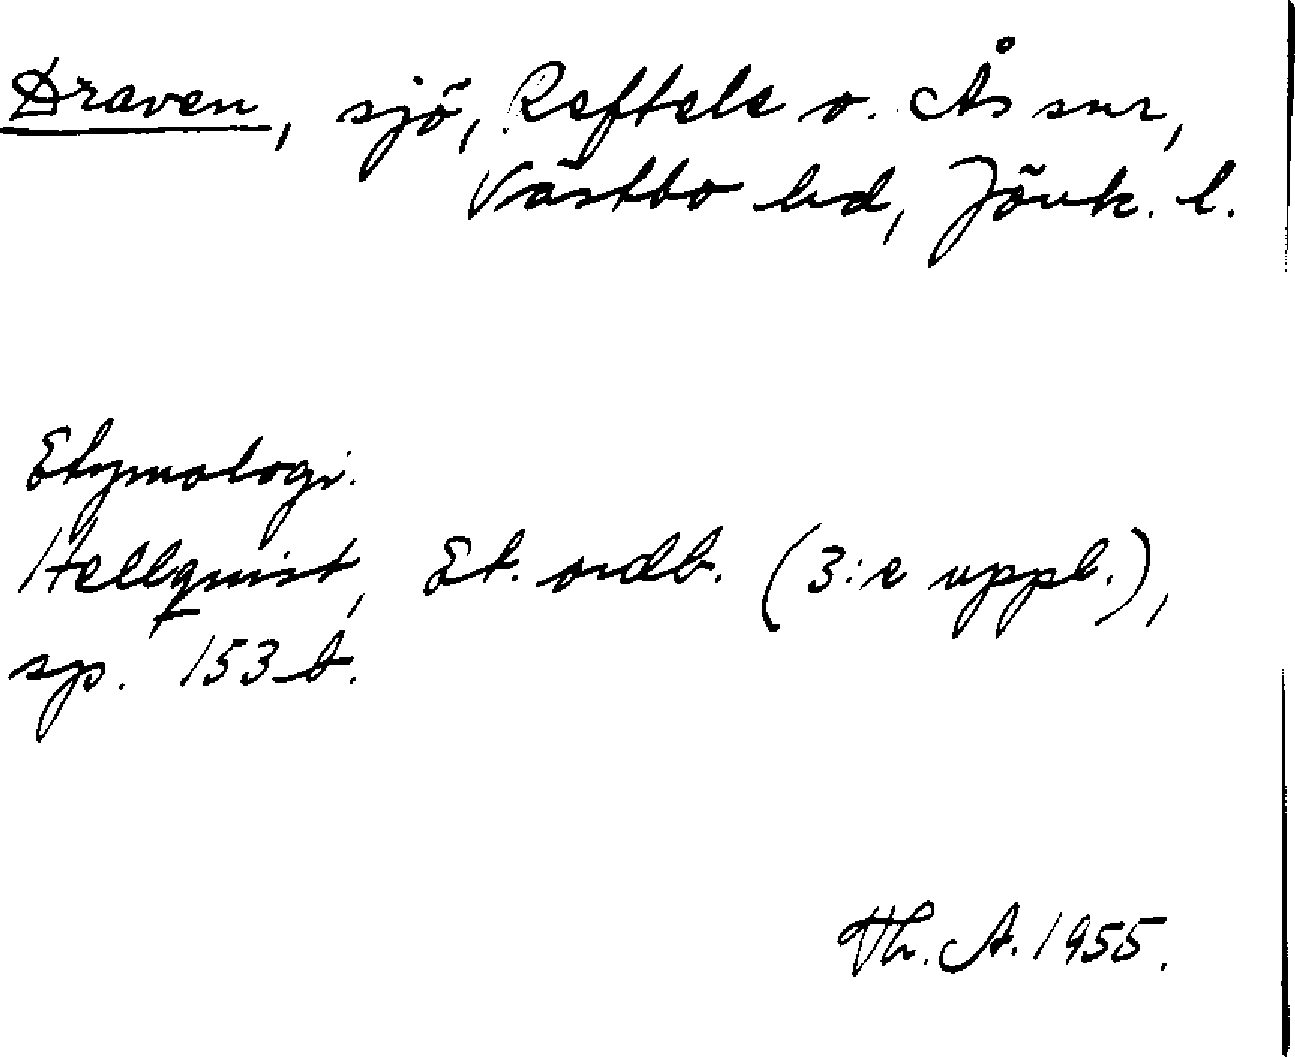 Draven, sjö, Reftele o. Ås snr,
Västbo hd, Jönk. l.
Etymologi.
Hellquist, Et. ordb. (3:e uppl.),
sp. 153 b.
Th. A. 1955.